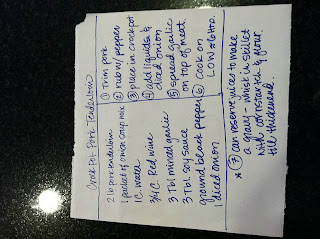 Crock Pot Pork Tenderloin
2 lb pork tenderloin
1 packet of onion soup mix
1 C. water
3/4 C. Red wine
3 Tbl minced garlic
3 Tbl soy sauce
ground black pepper
1 diced onion
① Trim pork
② rub w/ pepper
③ place in crockpot
④ add liquids &
diced onion
⑤ spread garlic
on top of meat
⑥ Cook on
LOW
* ⑦ can reserve juices to make
a gravy - whisk in skillet
with cornstarch & flour
till thickened.